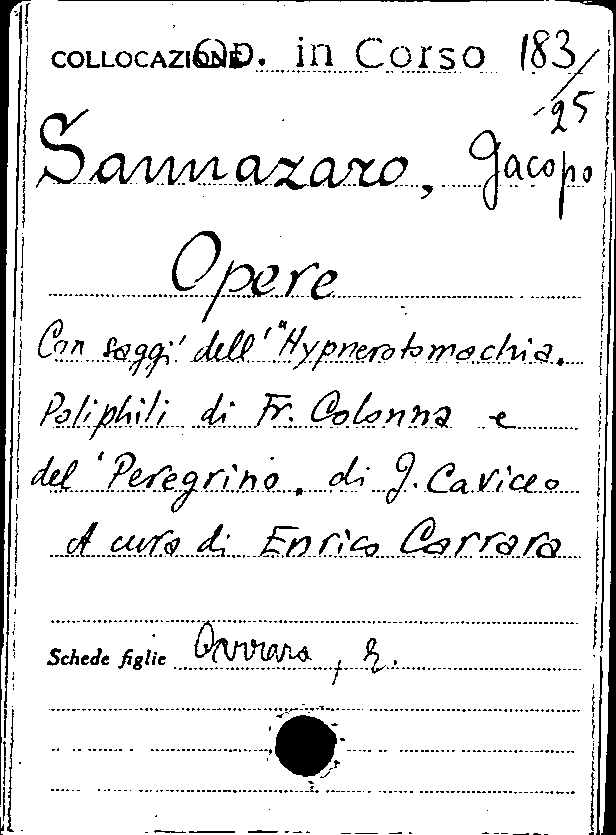 COLLOCAZIONE Op. in Corso 183/25
Sannazaro, Jacopo
Opere
Con saggi dell' "Hypnerotomachia.
Poliphili di Fr. Colonna e
del 'Peregrino. di J. Caviceo
A cura di Enrico Carrara
Schede figlie Carrara, E.